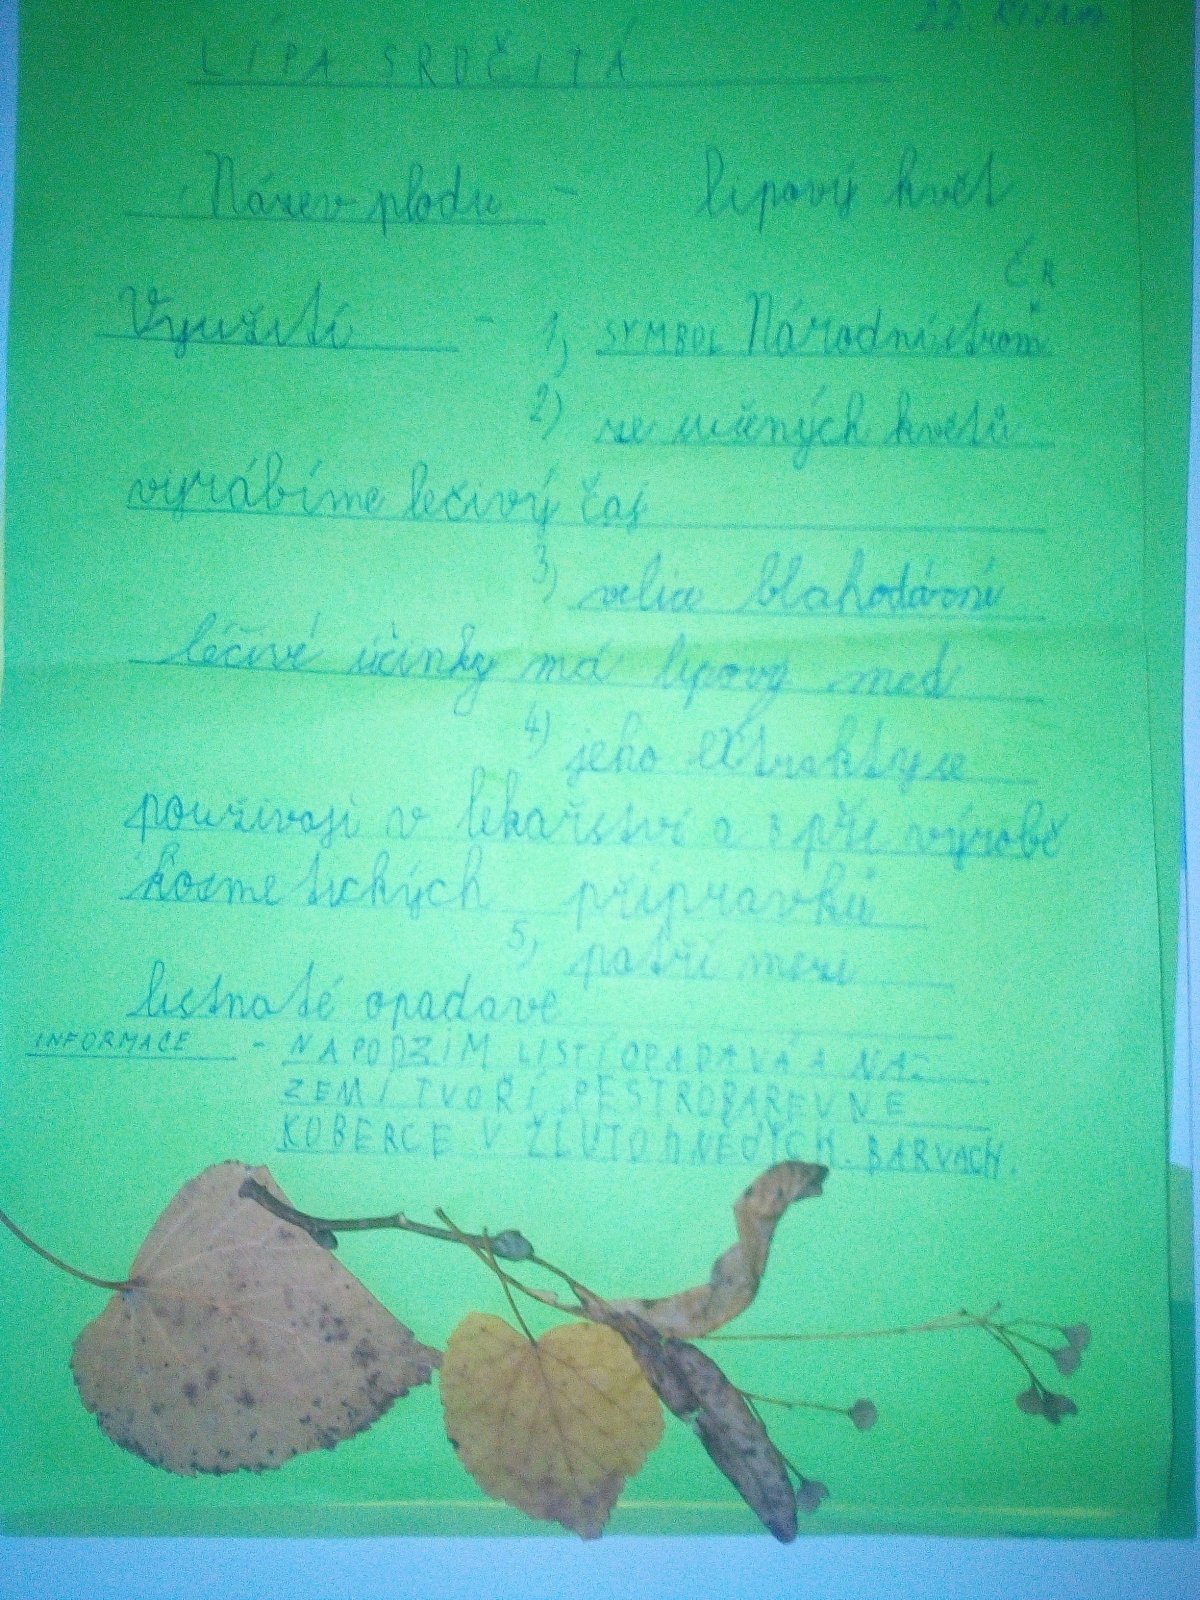 22. ŘÍJEN
LÍPA SRDČITÁ
Název plodu - lipový květ
ČR
Využití - 1, SYMBOL Národní strom
2) ze sušených květů
vyrábíme lečivý čaj
3) velice blahodárné
léčivé účinky má lipový med
4) jeho extrakty se
používají v lékařství a při výrobě
kosmetických přípravků
5, patří mezi
listnaté opadavé
INFORMACE - NA PODZIM LISTÍ OPADÁVÁ A NA
ZEMI TVOŘÍ PESTROBAREVNÉ
KOBERCE V ŽLUTOHNĚDÝCH BARVÁCH.